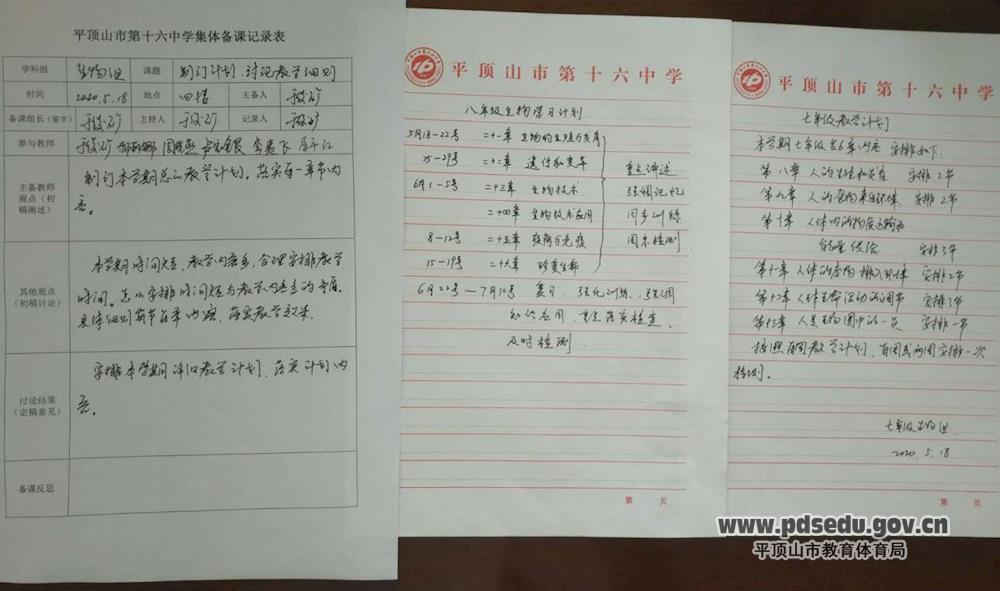 平顶山市第十六中学集体备课记录表
学科组 生物组 课题 制订计划、讨论教学细则
时间 2020.5.18 地点 四楼 主备人
备课组长（签字） 主持人 记录人
参与教师
主备教师观点（初稿阐述）
制订本学期总的教学计划，落实每一章节内
容。
其他观点（初稿讨论）
本学期时间短，教学内容多，合理安排教学
时间。
具体细则每节每章内容，落实教学效果。
讨论结果（定稿意见）
安排本学期详细教学计划、落实计划内
容。
备课反思
平顶山市第十六中学
八年级生物学习计划
5月18-22号 二十一章 生物的生殖与发育
25-29号 二十二章 遗传和变异 重点讲述
6月1-5号 二十三章 生物技术 强调记忆
二十四章 生物技术应用 同步训练
8-12号 二十五章 疾病与免疫 周末检测
15-19号 二十六章 珍爱生命
6月22号-7月10号 复习、强化训练、强调
知识应用、重点落实检查、
及时检测
第 页
平顶山市第十六中学
七年级教学计划
本学期七年级共6章内容 安排如下：
第八章 人的生殖和发育 安排2节
第九章 人的食物来自环境 安排2节
第十章 人体内的物质运输和
能量供给 安排3节
第十一章 人体的废物排入环境 安排2节
第十二章 人体生命活动的调节 安排3节
第十三章 人是生物圈中的一员 安排一节
按照每周教学计划，每周或两周安排一次
检测。
七年级生物组
2020.5.18
第 页
www.pdsedu.gov.cn
平顶山市教育体育局